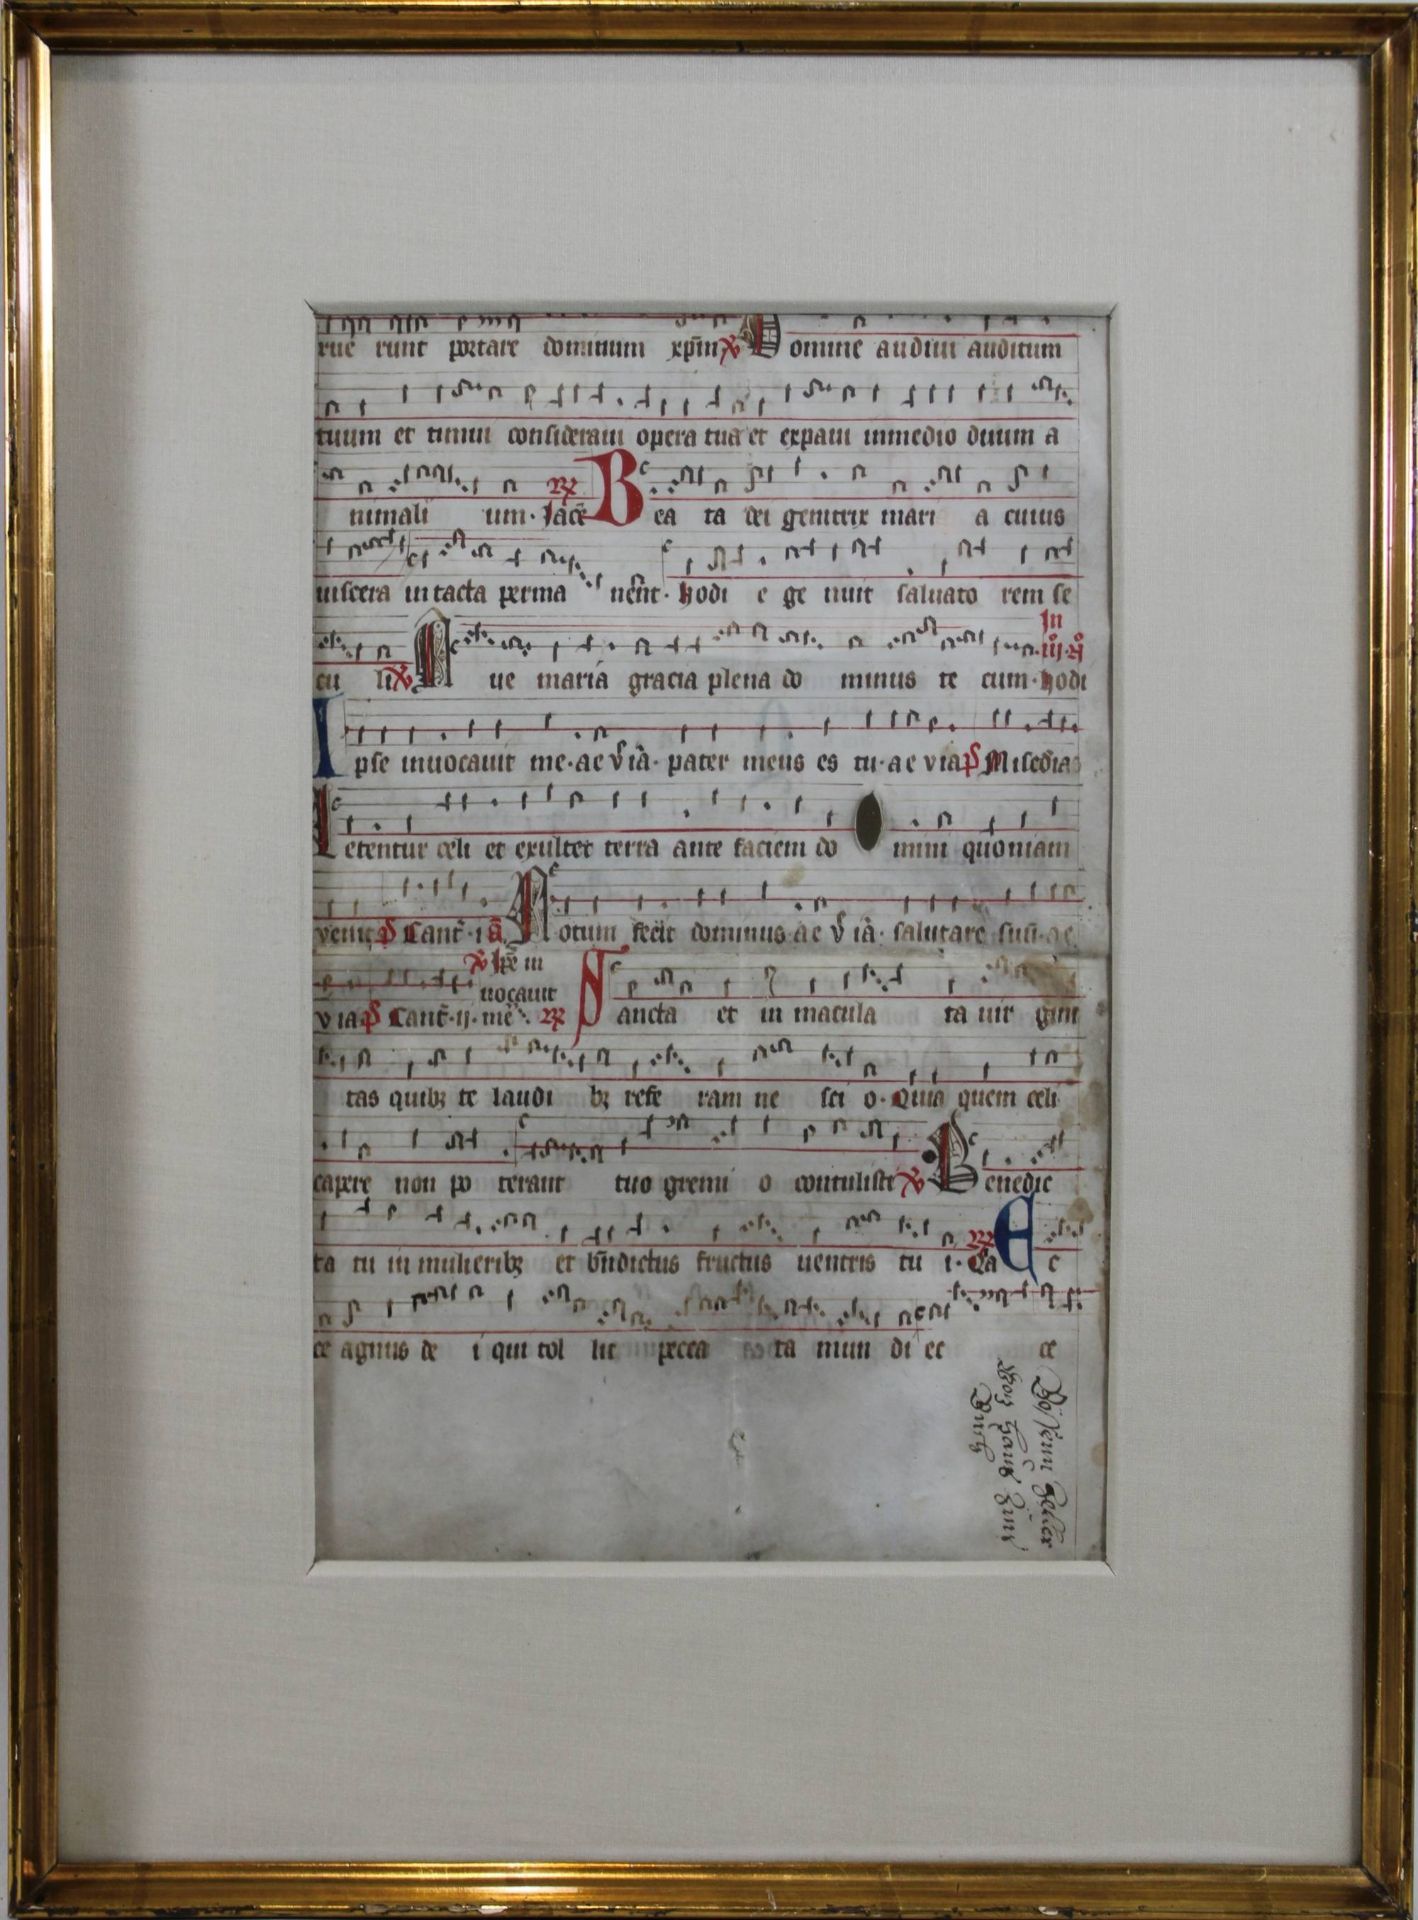 rue runt portare dominum xp̄m ℣ Domine audiui auditum
tuum et timui consideraui opera tua et expaui in medio duum a
nimali um. Jacē ℟ Bea ta dei genitrix mari a cuius
uiscera intacta perma nent. hodi e ge nuit saluato rem se
In
cu li ℣ Aue maria gracia plena do minus te cum. hodi iij. n̊
Ipse inuocauit me. ae v ia. pater meus es tu. ae via p̄s Misedias
Letentur celi et exultet terra ante faciem do mini quoniam
venit p̄s Cant̄. i a Notum fecit dominus. ae v ia. salutare suū. ae
℣ Ip̄e in
uocauit
via p̄s Cant̄. ij. me. ℟ Sancta et in macula ta uir gini
tas quibꝫ te laudi bꝫ refe ram ne sci o. Quia quem celi
capere non po terant tuo gremi o contulisti ℣ Benedic
ta tu in mulieribꝫ et bn̄dictus fructus uentris tu i. Qa ℟ Ec
ce agnus de i qui tol lit pecca ta mun di ec ce